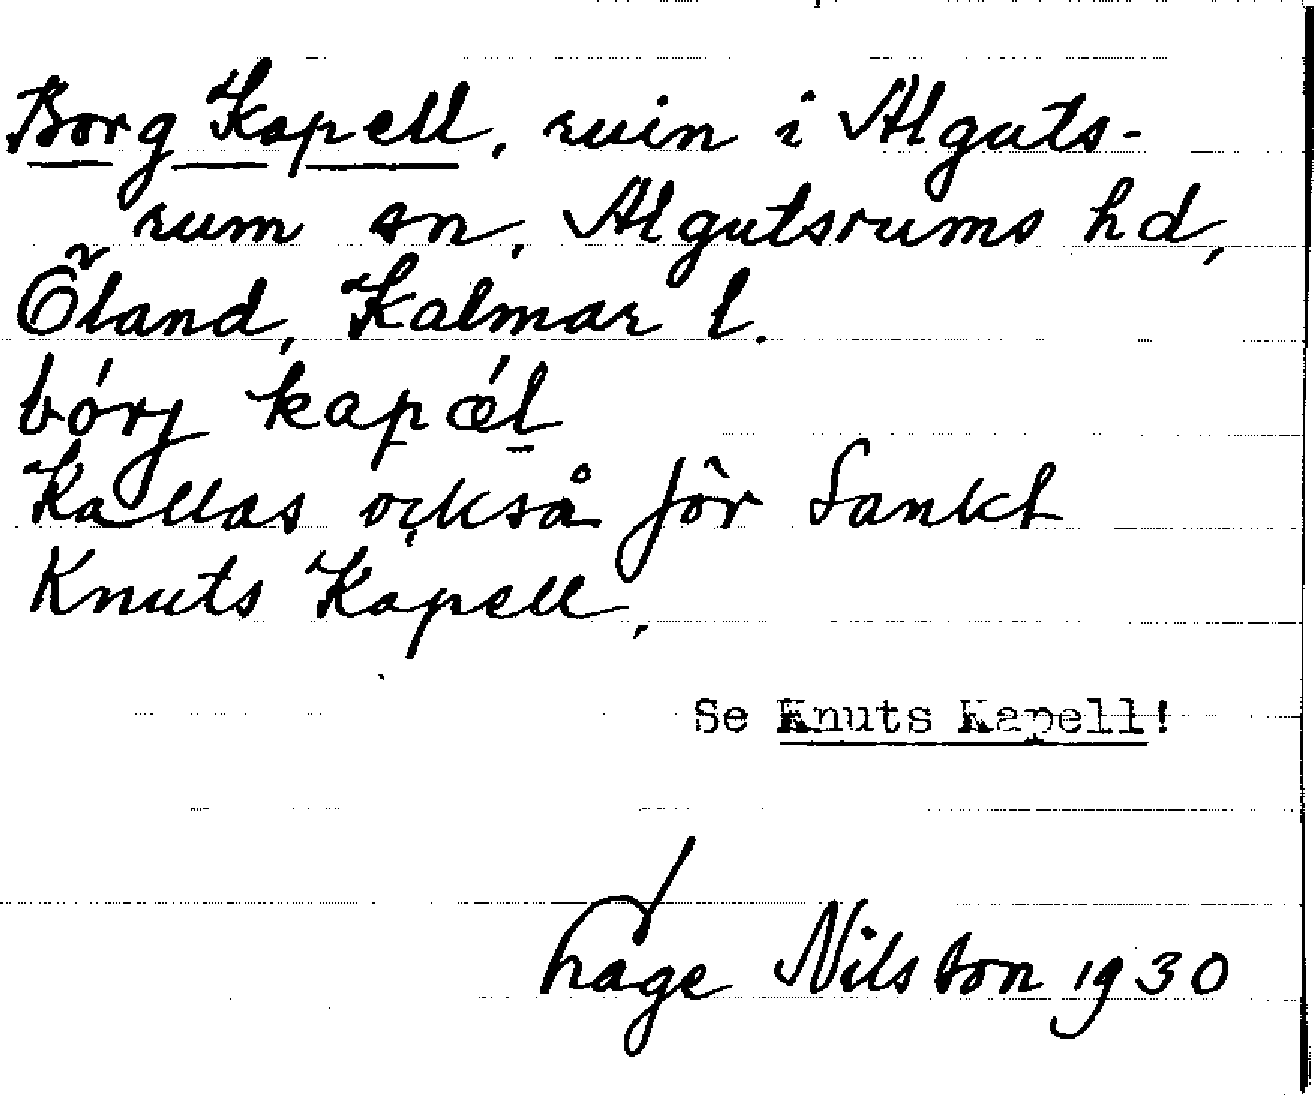 Borg Kapell, ruin i Alguts-
rum sn, Algutsrums hd,
Öland, Kalmar l.
bórj kapǽl
Kallas också för Sankt
Knuts Kapell.
Se Knuts Kapell!
Nilsson 1930